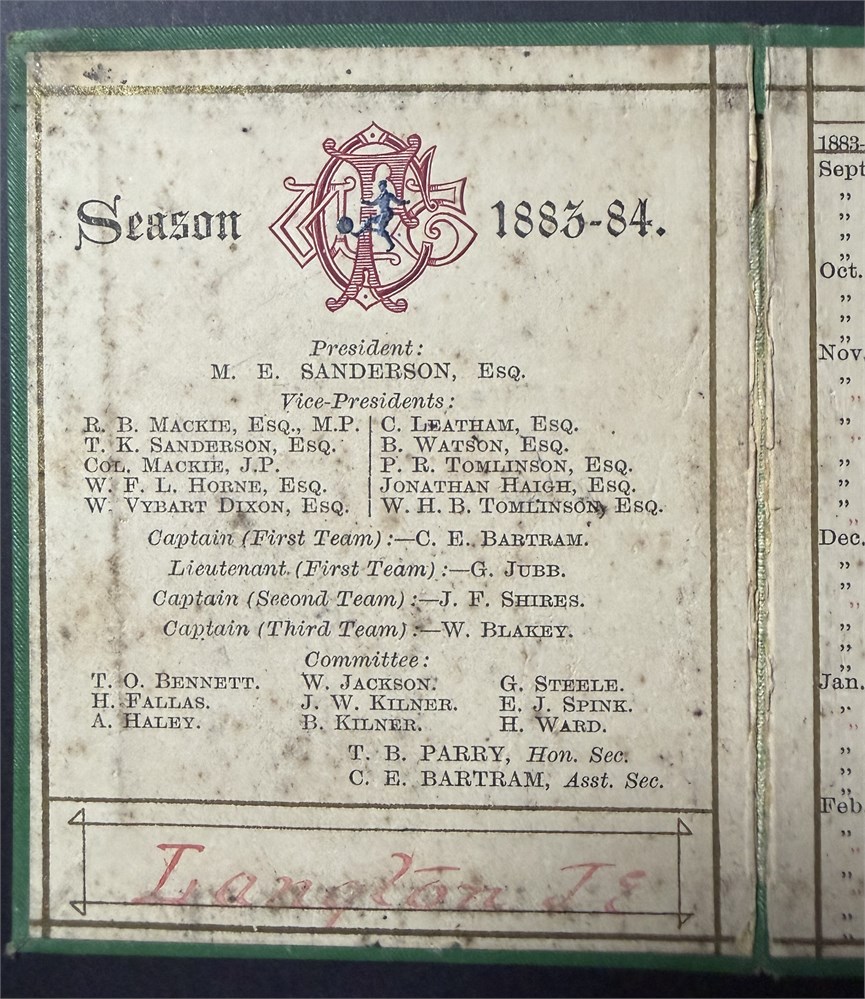 Season 1883-84.
President:
M. E. SANDERSON, ESQ.
Vice-Presidents:
R. B. MACKIE, ESQ., M.P. | C. LEATHAM, ESQ.
T. K. SANDERSON, ESQ. | B. WATSON, ESQ.
COL. MACKIE, J.P. | P. R. TOMLINSON, ESQ.
W. F. L. HORNE, ESQ. | JONATHAN HAIGH, ESQ.
W. VYBART DIXON, ESQ. | W. H. B. TOMLINSON, ESQ.
Captain (First Team) :—C. E. BARTRAM.
Lieutenant (First Team) :—G. JUBB.
Captain (Second Team) :—J. F. SHIRES.
Captain (Third Team) :—W. BLAKEY.
Committee:
T. O. BENNETT. W. JACKSON. G. STEELE.
H. FALLAS. J. W. KILNER. E. J. SPINK.
A. HALEY. B. KILNER. H. WARD.
T. B. PARRY, Hon. Sec.
C. E. BARTRAM, Asst. Sec.
Langton
1883-
Sept
„
„
„
„
Oct.
„
„
„
Nov.
„
„
„
„
„
„
„
„
Dec.
„
„
„
„
„
„
Jan.
„
„
„
„
„
Feb
„
„
„
„
„